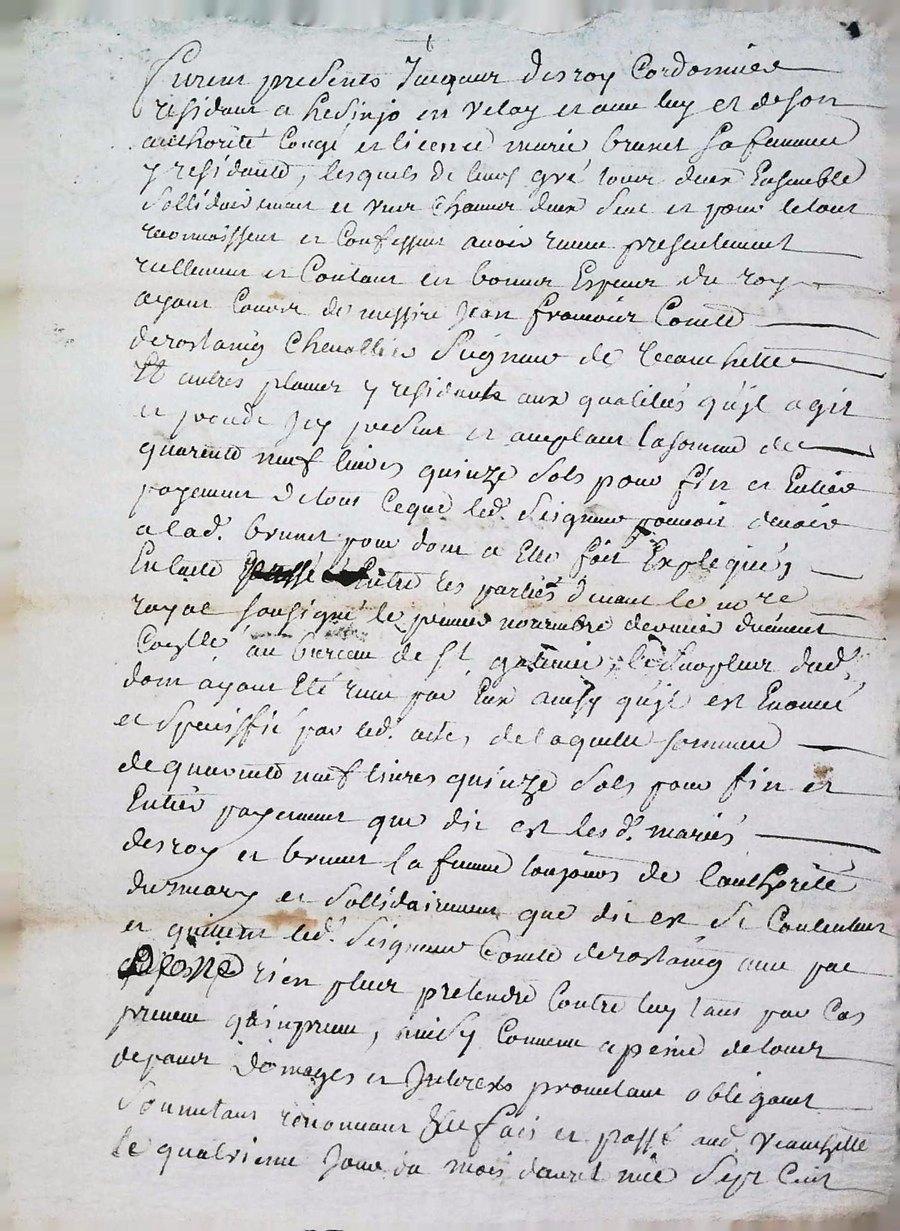 furent presents Jacques desroy Cordonnier
residant a hesinjo en Velay et avec luy et de son
authorité Congé et licence marie brunet sa femme
y residante, lesquels de leurs gré tous deux Ensemble
Sollidairement et un pour le tout
reconnoissent et Confessent avoir receu presentement
reellement et Contant en bonnes Especes du roy
ayant Cours de messire Jean francois Comte
derostaing Chevallier Seigneur de veauchette
Et autres places y residant aux qualités qu'jl agit
et procede Jcy present et acceptant la somme de
quarente neuf livres quinze Sols pour fin et Entier
payement de tout Ceque led. Seigneur pouvoit devoir
a lad. brunet pour dont a Elle fait Expliqués
En lacte passé Entre les parties devant le no.re
royal soussigné le premier novembre dernier duement
Conllé au bureau de St galmier, le Surpleux dud.
don ayant Eté receu par Eux ainsy qu'jl est Enoncé
et Speciffié par led. actes de laquelle somme
de quarente neuf livres quinze Sols pour fin et
Entier payement que dit est les d. mariés
desroy et brunet sa femme toujours de l'authorité
du mary et Sollidairement que dit est Se Contentent
et quittent led. Seigneur Comte derostaing avec pac
rien pleux pretendre Contre luy tant par Cas
preveu qu'inpreveu, ainsy Comme a peine de tous
depans Domages et Jnterets promettant obligeant
Soumettant renonceant &c fait et passé aud. veauchette
le quatrieme Jour du mois davril mil Sept Cent